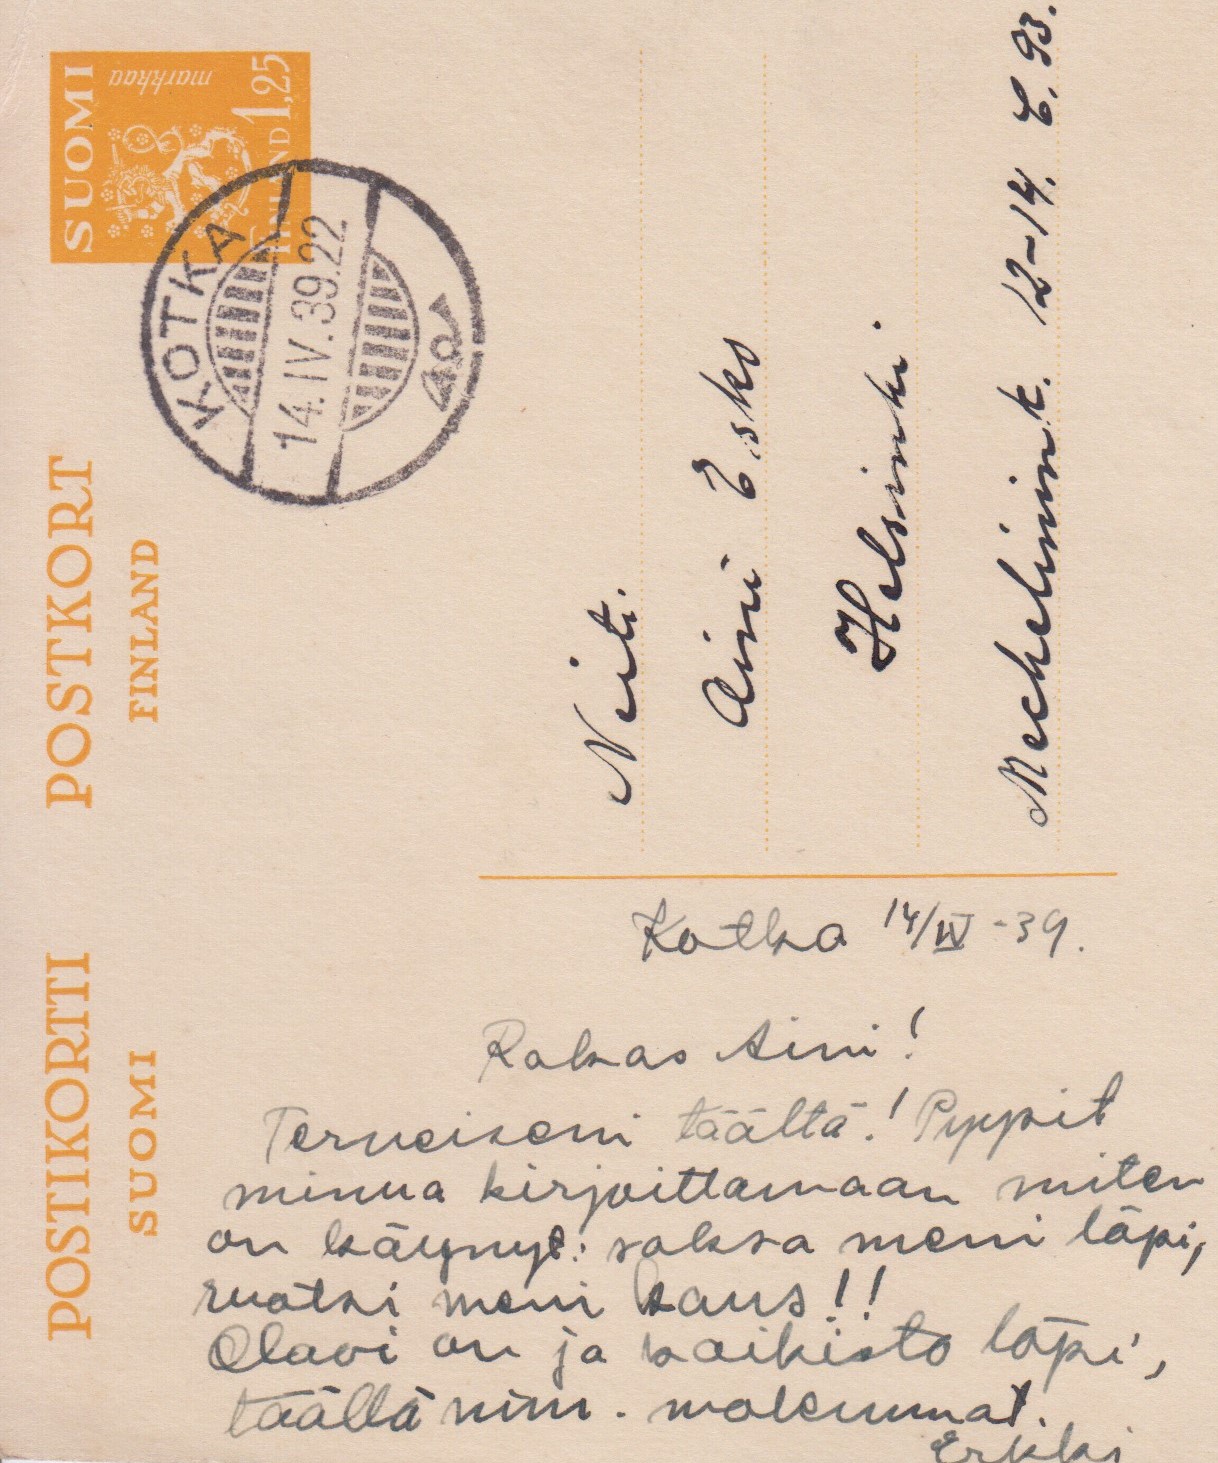 SUOMI
markkaa
1,25
FINLAND
KOTKA
14.IV.39.22
POSTIKORTTI POSTKORT
SUOMI FINLAND
Neiti.
Aini Esko
Helsinki.
Mechelinink. 12-14. C. 93.
Kotka 14/IV -39.
Rakas Aini!
Terveiseni täältä! Pyysit
minua kirjoittamaan miten
on käynyt: saksa meni läpi,
ruotsi meni kans!!
Olavi on ja kaikista läpi,
täällä nim. molemmat.
Erkki